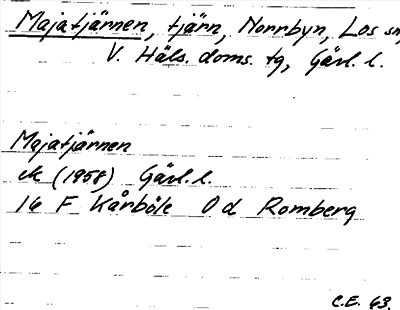 Majatjärnen, tjärn, Norrbyn, Los sn,
V. Häls. doms. tg, Gävl. l.
Majatjärnen
ek (1958) Gävl. l.
16 F Kårböle 0 d Romberg
C.E. 63.